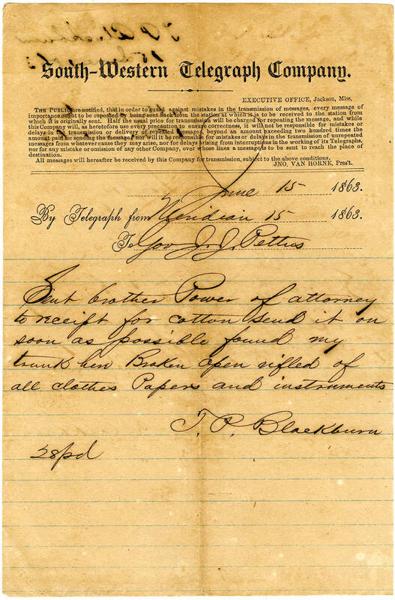 South-Western Telegraph Company.
EXECUTIVE OFFICE, Jackson, Miss.
THE PUBLIC are notified, that in order to guard against mistakes in the transmission of messages, every message of
importance ought to be repeated by being sent back from the station at which it is to be received to the station from
which it is originally sent. Half the usual price for transmission will be charged for repeating the message, and while
this Company will, as heretofore use every precaution to ensure correctness, it will not be responsible for mistakes or
delays in the transmission or delivery of messages beyond an amount exceeding two hundred times the
amount paid for sending the message; nor will it be responsible for mistakes or delays in the transmission of unrepeated
messages from whatever cause they may arise, nor for delays arising from interruptions in the working of its Telegraphs,
nor for any mistake or omission of any other Company, over whose lines a message is to be sent to reach the place of
destination.
All messages will hereafter be received by this Company for transmission, subject to the above conditions.
JNO. VAN HORNE, Pres't.
June 15 1863.
By Telegraph from Meridian 15 1863.
To Gov J. J. Pettus
Sent brother Power of attorney
to receipt for cotton send it on
soon as possible found my
trunk here Broken open rifled of
all clothes Papers and instruments
T. P. Blackburn
28 pd